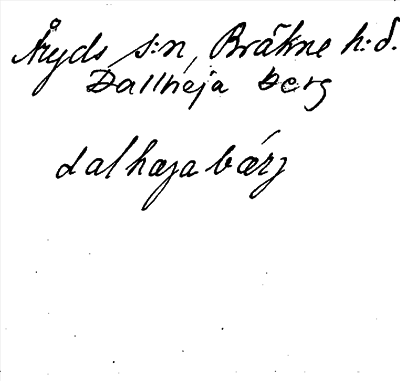 Åryds s:n, Bräkne h:d.
Dallhéja berg
dalhæjabærj